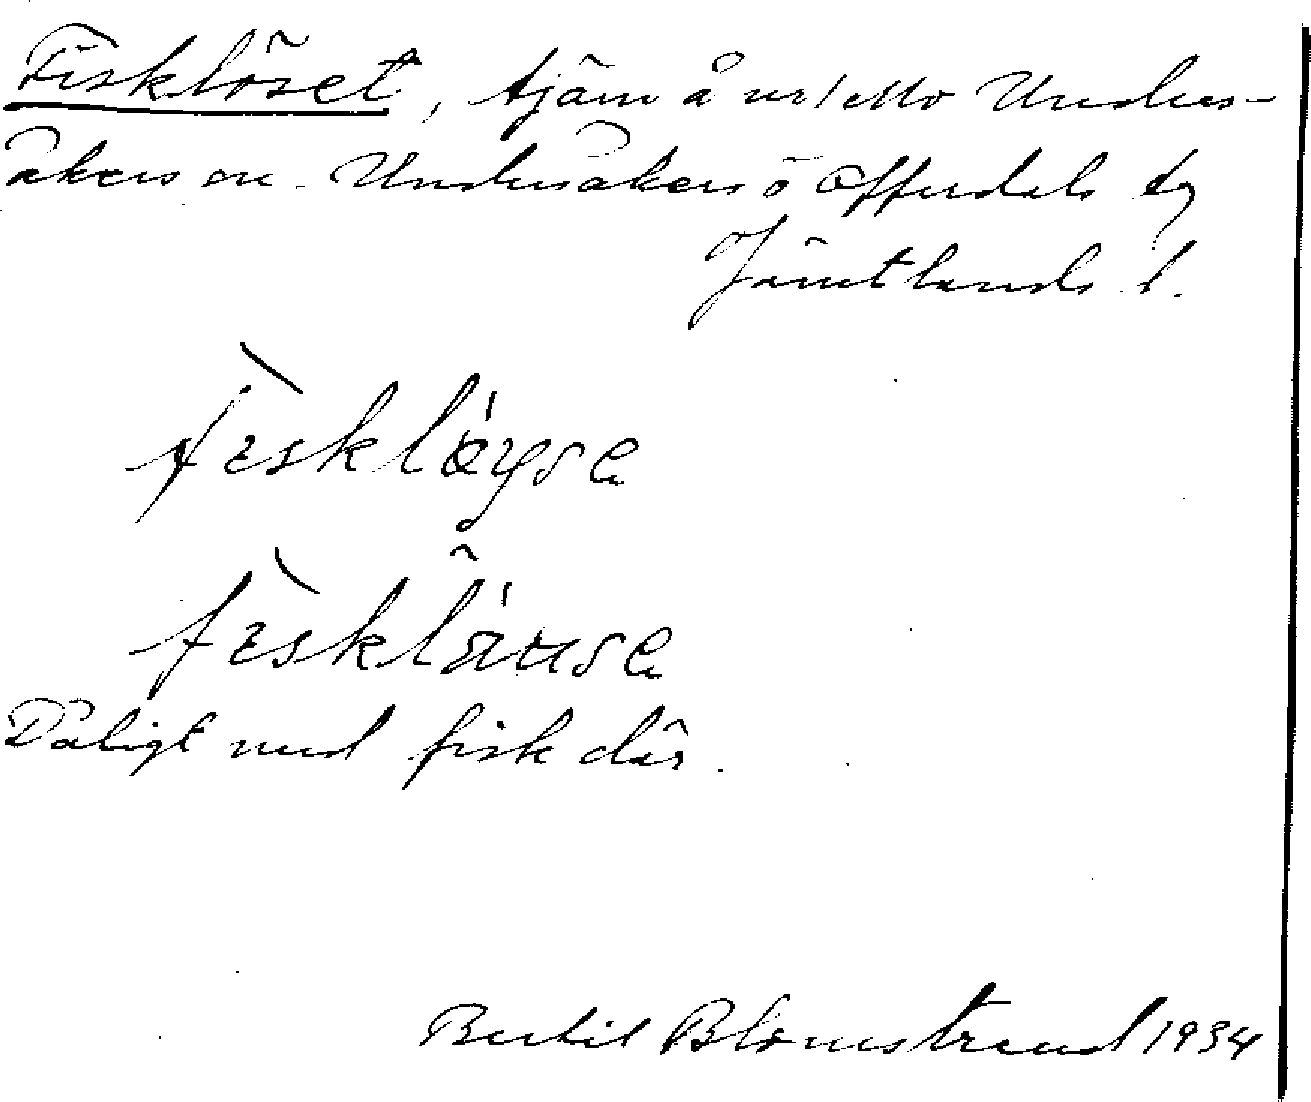 Fisklöset, tjärn å nr 1 Mo Unders-
åkers sn. Undersåkers o Offerdals tg
Jämtlands l.
fìsklǿyse
fìsklåuse
Dåligt med fisk där.
Bertil Blomstrand 1934